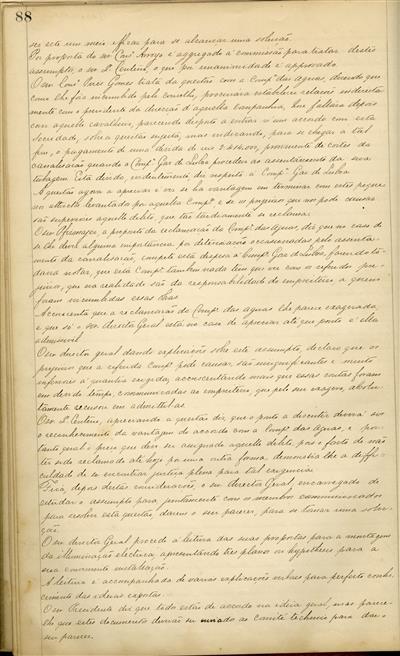 88
ser este um meio efficaz para se alcançar uma solução.
Por proposta do sr. Cons.º Arroyo é aggregado á commissão para tratar deste
assumpto, o sr. Centeno, o que por unanimidade é approvado.
O snr. Cons.º Pires Gomes trata da questão com a Comp.ª das aguas, dizendo que
como lhe fôra incumbido pelo conselho, procurára estabelecer relações indirecta-
mente com o presidente da direcção d'aquella companhia, que fallára depois
com aquelle cavalheiro, parecendo disposto a entrar n'um accordo com esta
Sociedade, sobre a questão sujeita, mas indicando, para se chegar a tal
fim, o pagamento de uma divida de reis proveniente de cortes da
canalisação quando a Comp.ª Gaz de Lisboa procedeu ao assentamento da sua
tubagem. Esta divida, evidentemente diz respeito á Comp.ª Gaz de Lisboa.
A questão agora a apreciar é ver se ha vantagem em terminar com estes peque-
nos attrictos levantados por aquella Comp.ª e se os prejuizos que nos pode causar
são superiores áquelle debito, que tão tardiamente se reclama.
O snr. a proposito da reclamação da Comp.ª das Aguas, diz que no caso de
se lhe dever alguma importancia por deteriorações occasionadas pelo assenta-
mento da canalisação, compete esta despeza á Comp.ª Gaz de Lisboa, fazendo to-
davia notar, que esta Comp.ª tambem nada tem que ver com os referidos pre-
juizos, que na realidade são da responsabilidade do empreiteiro a quem
foram incumbidas essas obras.
Accrescenta que a reclamação da Comp.ª das aguas lhe parece exagerada
e que só o snr. director Geral está no caso de apreciar até que ponto é ella
admissivel.
O snr. director geral dando explicações sobre este assumpto, declara que os
prejuizos que a referida Comp.ª pode causar, são insignificantes e muito
inferiores á quantia exigida, accrescentando mais que essas contas foram
em devido tempo, communicadas ao empreiteiro, que pelo seu exagero, absolu-
tamente recusou em admittil-as.
O snr. Centeno, apreciando a questão diz que o ponto a discutir deverá ser
o reconhecimento da vantagem do accordo com a Comp.ª das Aguas, e por-
tanto qual o preço que deve ser assignado aquelle debito, pois o facto de não
ter sido reclamado até hoje por uma outra forma, demonstra-lhe a diffi-
culdade de se encontrar justiça plena para tal exigencia.
Fica, depois destas considerações, o snr. director Geral, encarregado de
estudar o assumpto para, juntamente com os membros commissionados
para resolver esta questão, darem o seu parecer, para se tomar uma solu-
ção.
O snr. director Geral procede á leitura das suas propostas para a montagem
da illuminação electrica, apresentando tres planos ou hypotheses para a
sua conveniente installação.
A leitura é acompanhada de varias explicações verbaes para perfeito conhe-
cimento das ideias expostas.
O snr. Presidente diz que todos estão de accordo na ideia geral, mas parece-
lhe que estes documentos deverão ser enviado ao Comité technico para dar o
seu parecer.